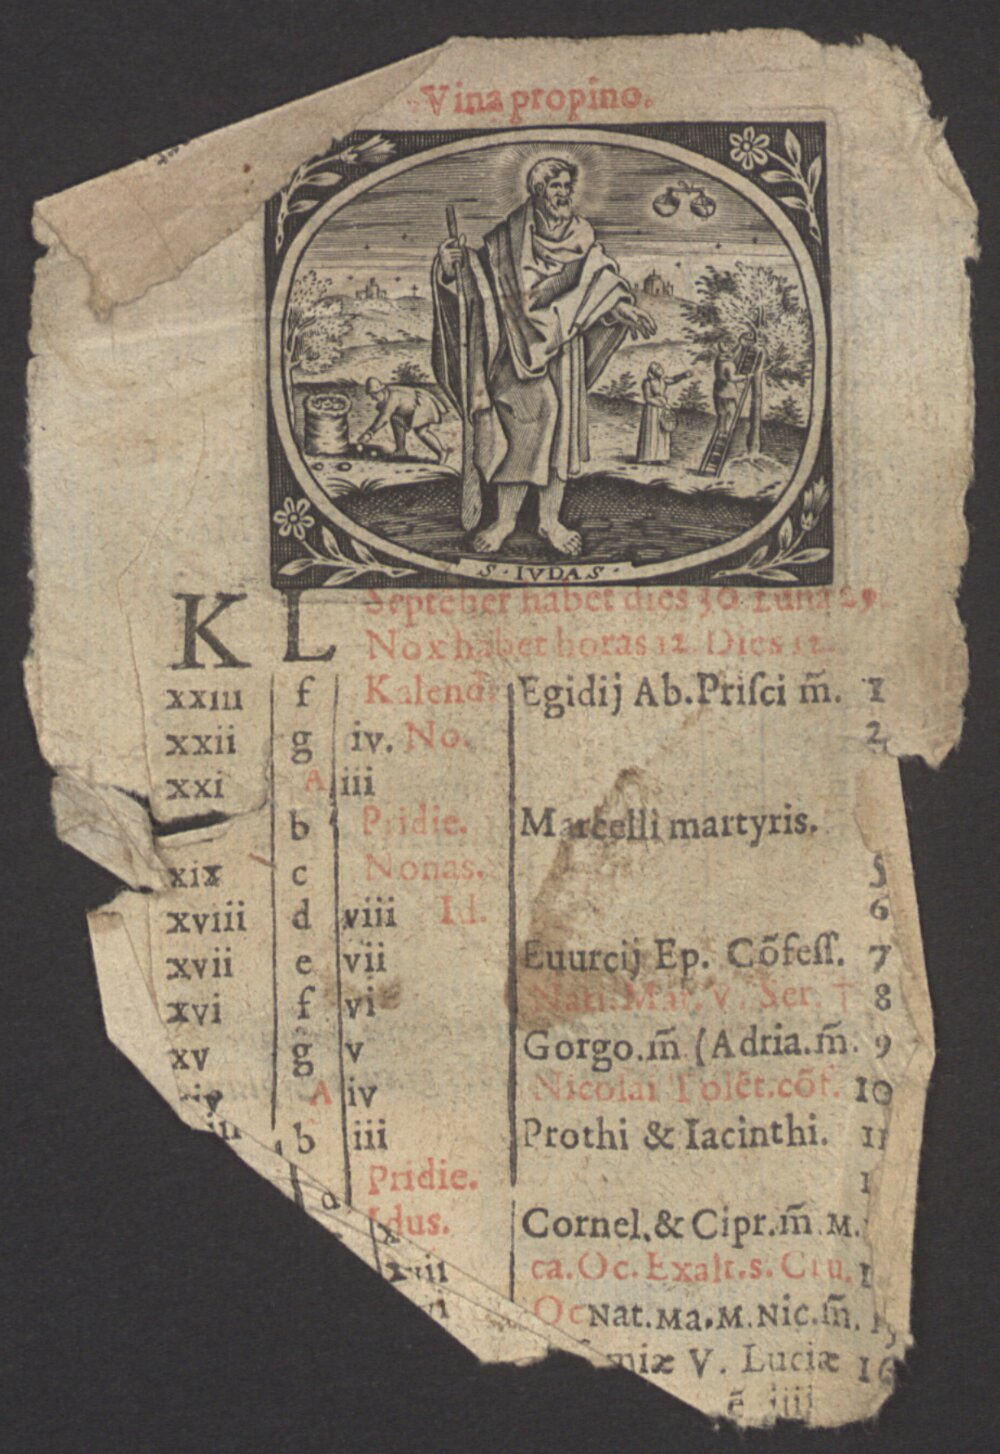 Vina propino.
S · IVDAS ·
KL Septẽber habet dies 30 Luna 29
Nox habet horas 12 Dies 12
xxiii f Kalend. Egidij Ab. Priſci m̃. 1
xxii g iv. No. 2
xxi A iii
b Pridie. Marcelli martyris.
xix c Nonas. 5
xviii d viii Id. 6
xvii e vii Euurcij Ep. Cõfeſſ. 7
xvi f vi Nati. Mar. V. Ser. † 8
xv g v Gorgo. m̃ (Adria. m̃. 9
A iv Nicolai Tolẽt. cõf. 10
b iii Prothi & Iacinthi. 11
d Pridie. 1
Idus. Cornel. & Cipr. m̃ M.
xvii ca. Oc. Exalt. s. Cru. 1
vi Oc Nat. Ma. M. Nic. m̃.
miæ V. Luciæ 16
ẽ iiij